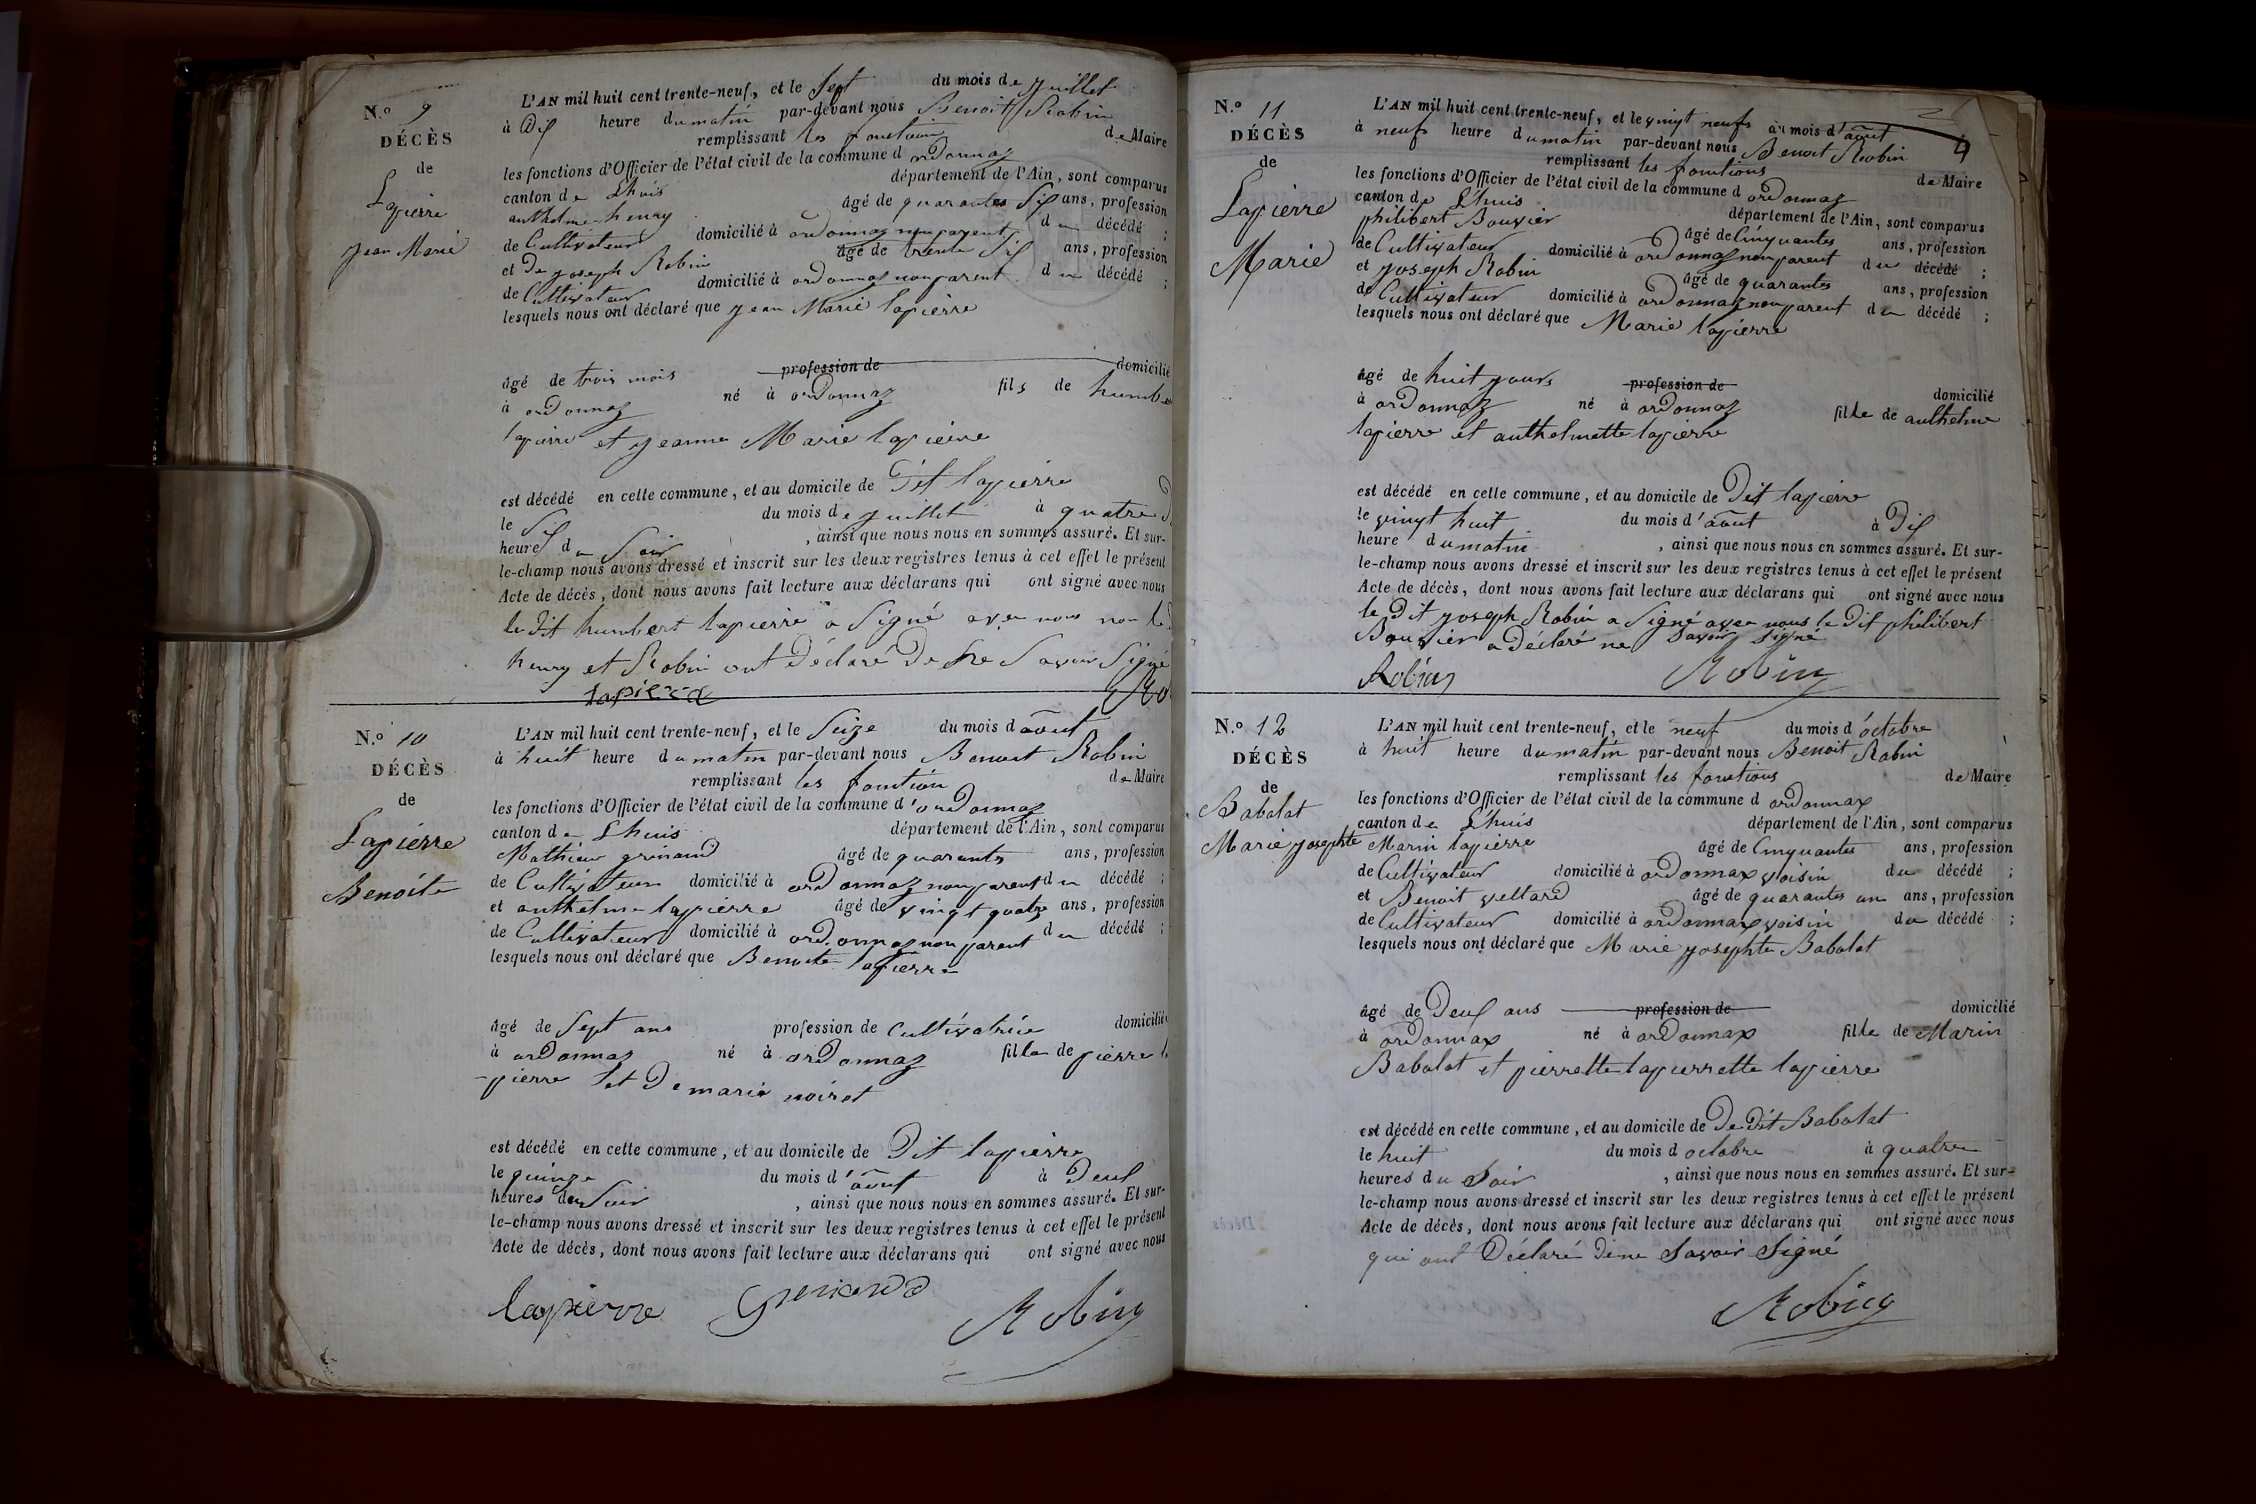 N.o 9
DÉCÈS
de
Lapierre
Jean Marie
L'AN mil huit cent trente-neuf, et le Sept du mois de juillet
à Dix heure du matin par-devant nous Benoit Robin
remplissant les fonctions de Maire
les fonctions d'Officier de l'état civil de la commune d ordonnaz
canton de Lhuis département de l'Ain, sont comparus
anthelme henry âgé de quarantes Six ans, profession
de Cultivateur domicilié à ordonnaz non parent du décédé ;
et De joseph Robin âgé de trente Six ans, profession
de Cultivateur domicilié à ordonnaz non parent du décédé ;
lesquels nous ont déclaré que jean Marie lapierre
âgé de trois mois profession de domicilié
à ordonnaz né à ordonnaz fils de humb
lapierre et jeanne Marie lapierre
est décédé en cette commune, et au domicile de Dit lapierre
le Six du mois de juillet à quatre
heures du Soir , ainsi que nous nous en sommes assuré. Et sur-
le-champ nous avons dressé et inscrit sur les deux registres tenus à cet effet le présent
Acte de décès, dont nous avons fait lecture aux déclarans qui ont signé avec nous
le dit humbert lapierre a Signé avec nous non le
henry et Robin ont Déclaré De ne Savoir Signé
lapierre Ro
N.o 10
DÉCÈS
de
Lapierre
Benoite
L'AN mil huit cent trente-neuf, et le Seize du mois d août
à huit heure du matin par-devant nous Benoit Robin
remplissant les fonction de Maire
les fonctions d'Officier de l'état civil de la commune d'ordonnaz
canton de Lhuis département de l'Ain, sont comparus
Mathieu grinand âgé de quarante ans, profession
de Cultivateur domicilié à ordonnaz non parent du décédé ;
et anthelme lapierre âgé de vingt quatre ans, profession
de Cultivateur domicilié à ordonnaz non parent du décédé ;
lesquels nous ont déclaré que Benoite lapierre
âgé de Sept ans profession de Cultivatrice domicilié
à ordonnaz né à ordonnaz fille de pierre la
-pierre et De marie noiret
est décédé en cette commune, et au domicile de Dit lapierre
le quinze du mois d'août à Deux
heures du Soir , ainsi que nous nous en sommes assuré. Et sur-
le-champ nous avons dressé et inscrit sur les deux registres tenus à cet effet le présent
Acte de décès, dont nous avons fait lecture aux déclarans qui ont signé avec nous
lapierre Grinand Robin
4
N.o 11
DÉCÈS
de
Lapierre
Marie
L'AN mil huit cent trente-neuf, et le vingt neufs du mois d'août
à neufs heure du matin par-devant nous Benoit Robin
remplissant les fonctions de Maire
les fonctions d'Officier de l'état civil de la commune d ordonnaz
canton de Lhuis département de l'Ain, sont comparus
philibert Bouvier âgé de Cinquantes ans, profession
de Cultivateur domicilié à ordonnaz non parent du décédé ;
et joseph Robin âgé de quarantes ans, profession
de Cultivateur domicilié à ordonnaz non parent du décédé ;
lesquels nous ont déclaré que Marie lapierre
âgé de huit jours profession de domicilié
à ordonnaz né à ordonnaz fille de anthelme
lapierre et anthelmette lapierre
est décédé en cette commune, et au domicile de Dit lapierre
le vingt huit du mois d'août à Dix
heure du matin , ainsi que nous nous en sommes assuré. Et sur-
le-champ nous avons dressé et inscrit sur les deux registres tenus à cet effet le présent
Acte de décès, dont nous avons fait lecture aux déclarans qui ont signé avec nous
le Dit joseph Robin a Signé avec nous le Dit philibert
Bouvier a Déclaré ne Savoir Signé
Robin Robin
N.o 12
DÉCÈS
de
Babolat
Marie josephte
L'AN mil huit cent trente-neuf, et le neuf du mois d'octobre
à huit heure du matin par-devant nous Benoit Robin
remplissant les fonctions de Maire
les fonctions d'Officier de l'état civil de la commune d ordonnax
canton de Lhuis département de l'Ain, sont comparus
Marin lapierre âgé de Cinquantes ans, profession
de Cultivateur domicilié à ordonnax voisin du décédé ;
et Benoit vettard âgé de quarantes un ans, profession
de Cultivateur domicilié à ordonnax voisin du décédé ;
lesquels nous ont déclaré que Marie josephte Babolat
âgé de Deux ans profession de domicilié
à ordonnax né à ordonnax fille de Marin
Babolat et pierrette lapierrette lapierre
est décédé en cette commune, et au domicile de De Dit Babolat
le huit du mois d octobre à quatre
heures du Soir , ainsi que nous nous en sommes assuré. Et sur-
le-champ nous avons dressé et inscrit sur les deux registres tenus à cet effet le présent
Acte de décès, dont nous avons fait lecture aux déclarans qui ont signé avec nous
qui ont Déclaré De ne Savoir Signé
Robin